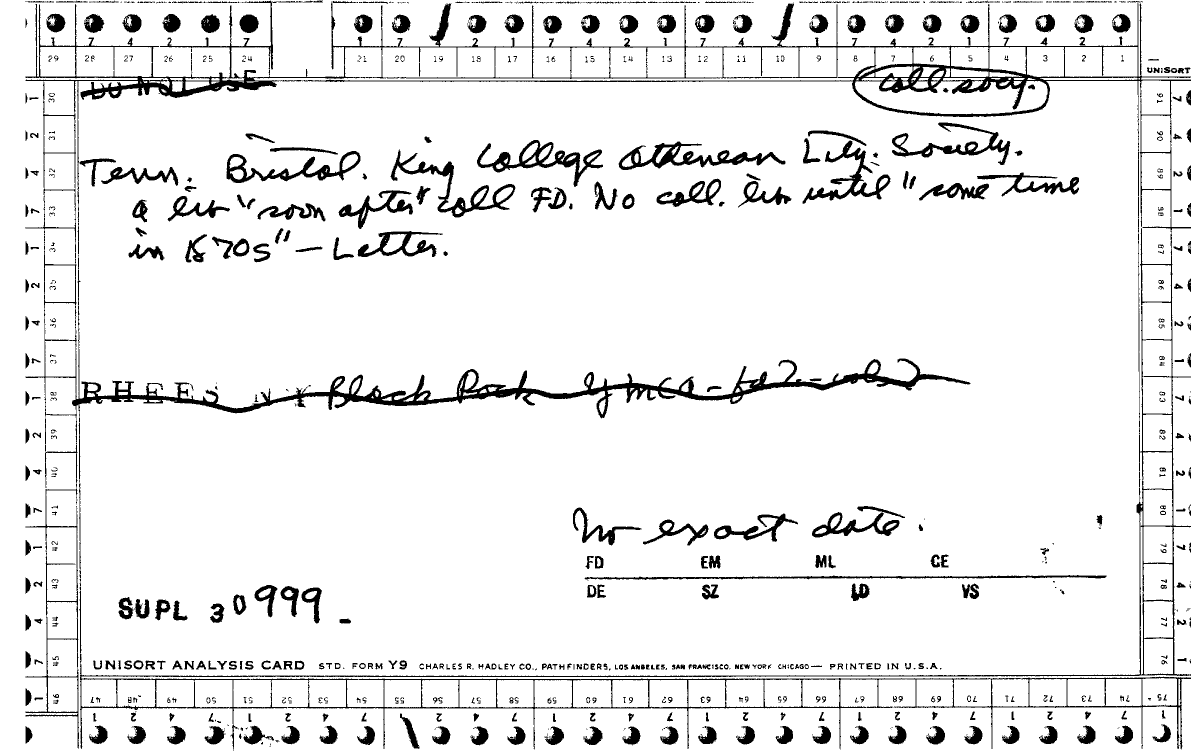 1 7 4 2 1 7 1 7 4 2 1 7 4 2 1 7 4 2 1 7 4 2 1
29 28 27 26 25 24 21 20 19 18 17 16 15 14 13 12 11 10 9 8 7 6 5 4 3 2 1
UNISORT
DO NOT USE
coll. socy.
Tenn. Bristol. King College Athenean Lity. Society.
A lib "soon after" coll FD. No coll. lib until "some time
in 1870s" — Letter.
RHEES NY Black Rock YMCA - fd? - vols?
No exact date.
FD EM ML CE
DE SZ LD VS
SUPL 30999 -
UNISORT ANALYSIS CARD STD. FORM Y9 CHARLES R. HADLEY CO., PATHFINDERS, LOS ANGELES, SAN FRANCISCO, NEW YORK CHICAGO — PRINTED IN U.S.A.
47 48 49 50 51 52 53 54 55 56 57 58 59 60 61 62 63 64 65 66 67 68 69 70 71 72 73 74 75